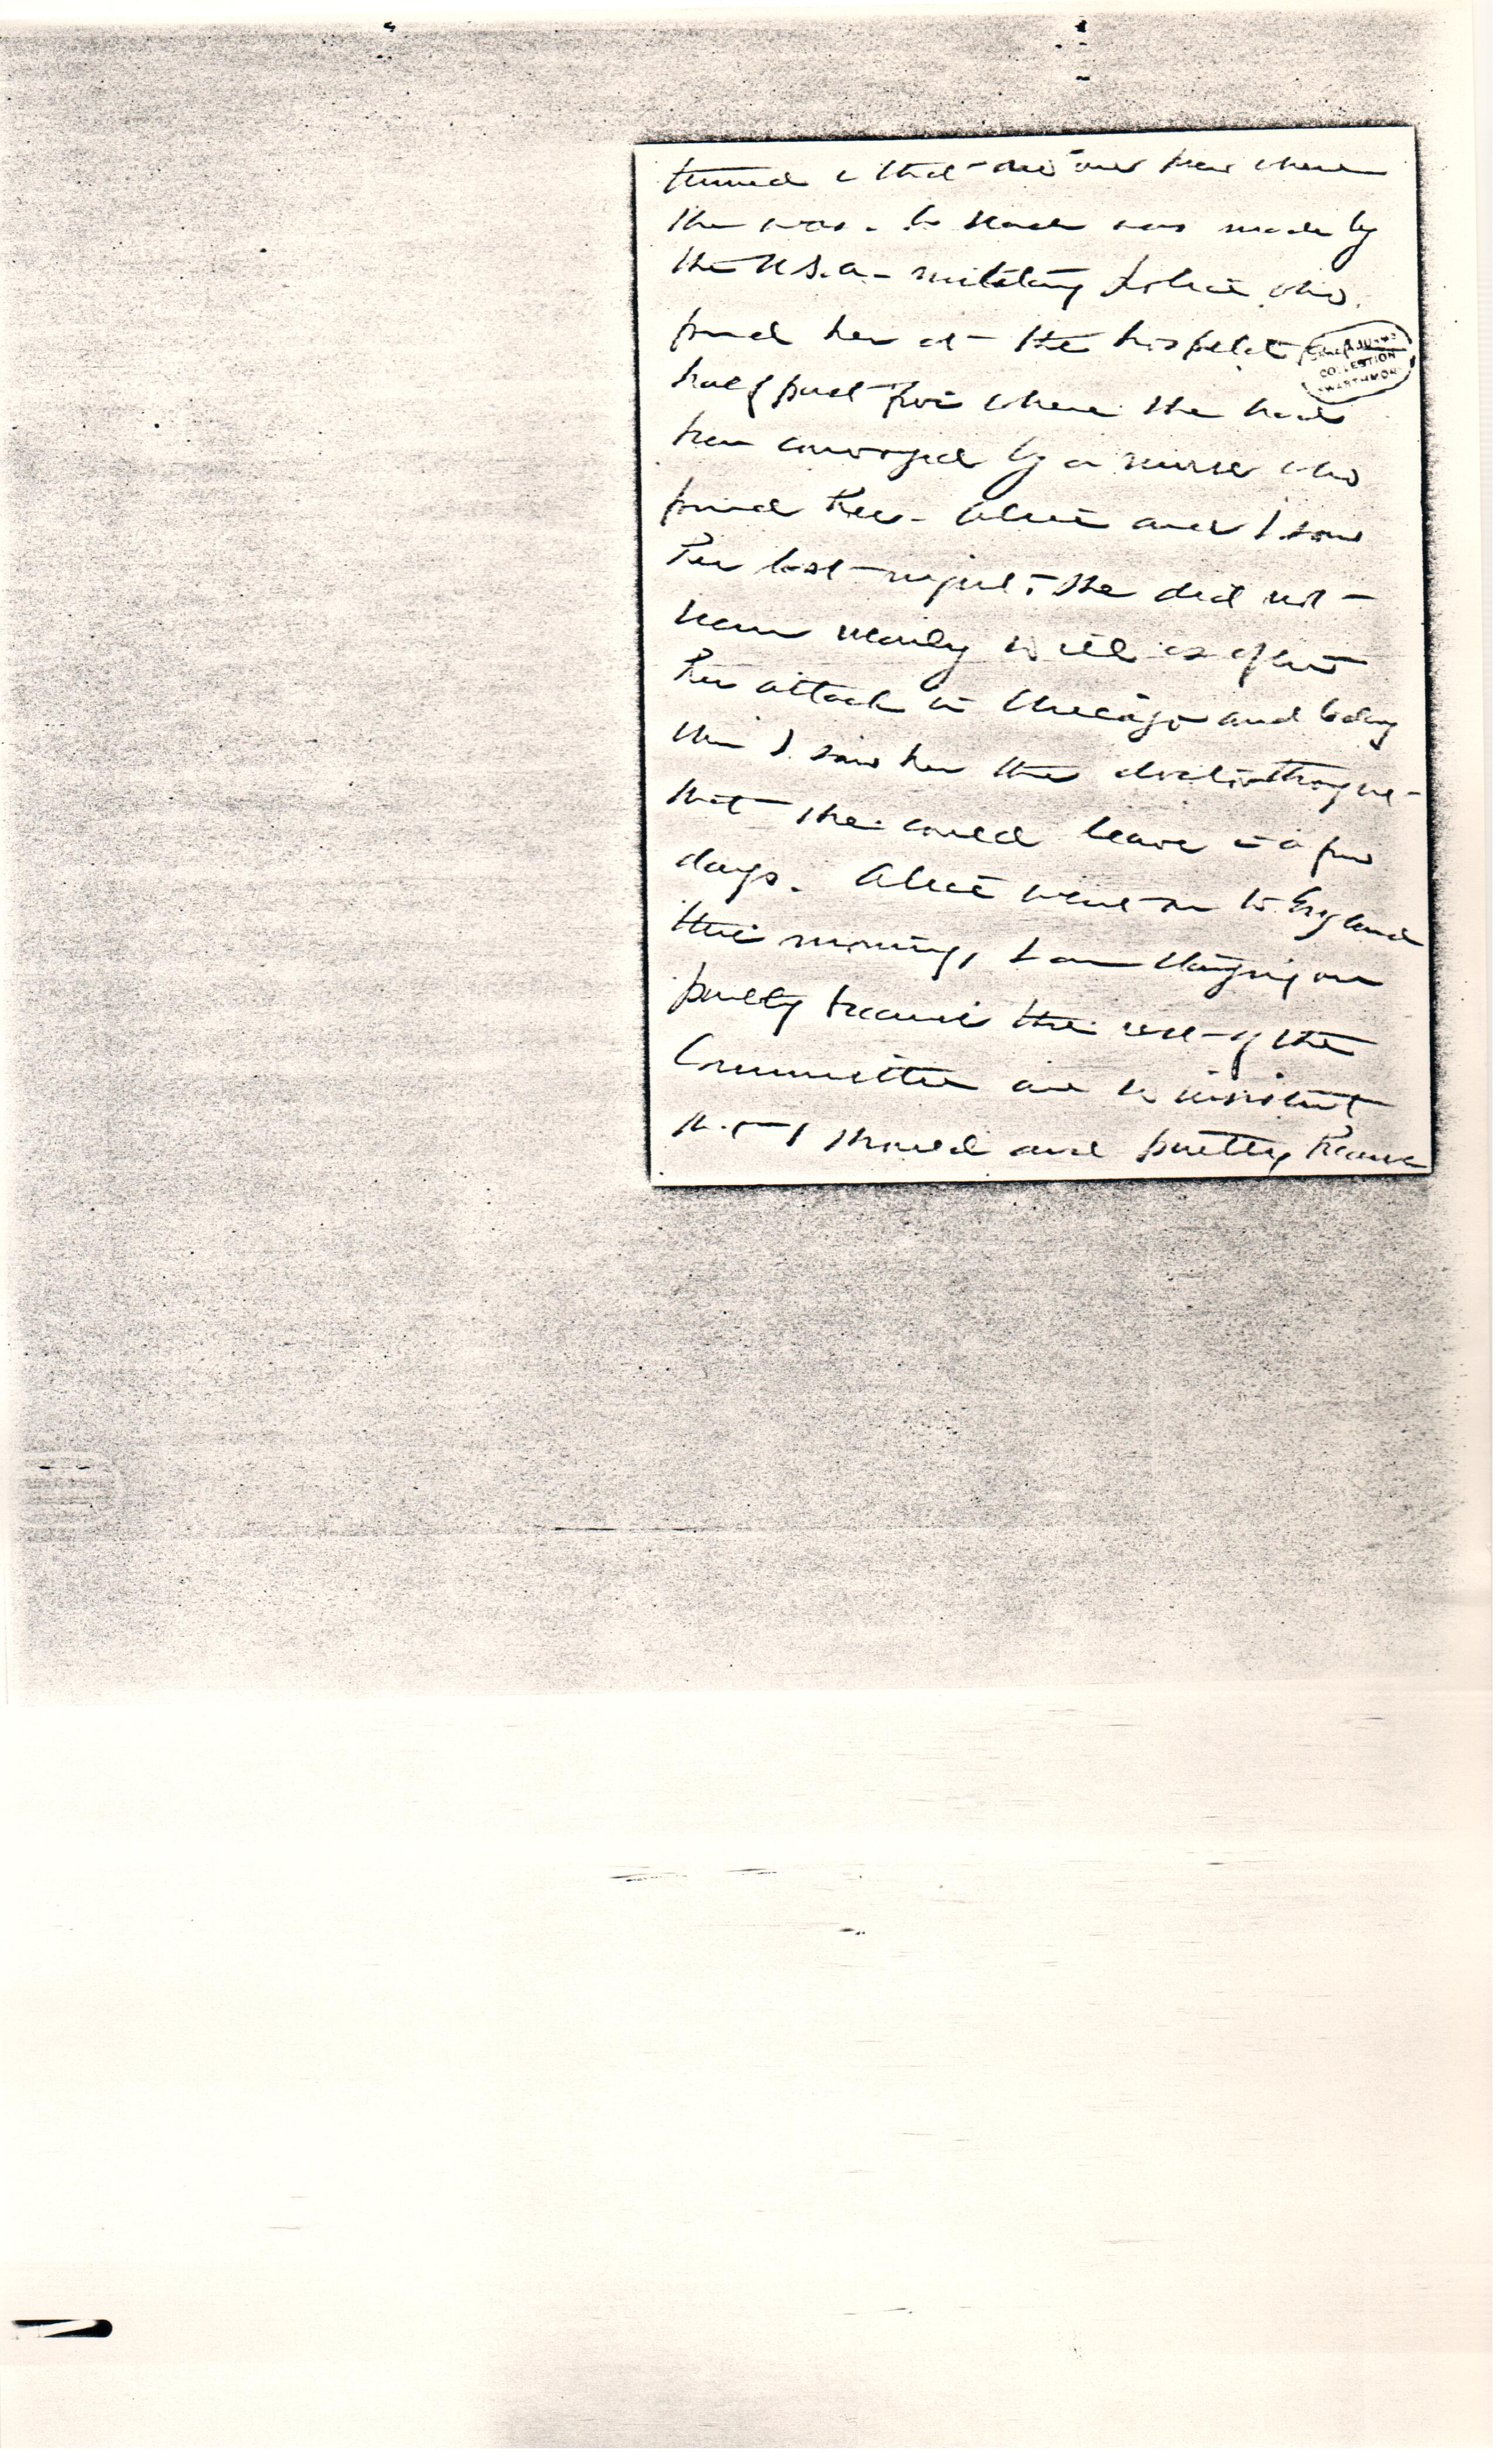 turned & that no one knew where
she was. A search was made by
the U.S.A. military police who
found her at the hospital
JANE ADDAMS
COLLECTION
SWARTHMORE
half past five where she had
been conveyed by a nurse who
found her. Alice and I saw
her last night, she did not
seem nearly so ill as after
her attack in Chicago and today
when I saw her the doctor thought
that she could leave in a few
days. Alice went on to England
this morning, I am staying on
partly because the rest of the
Committee are so insistent
that I should and partly because